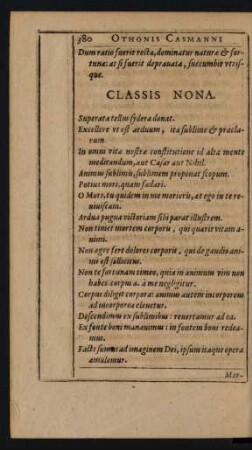 380 OTHONIS CASMANNI
Dum ratio fuerit recta, dominatur naturæ & for-
tunæ: at si fuerit deprauata, succumbit vtris-
que.
CLASSIS NONA.
Superata tellus sydera donat.
Excellere vt est arduum, ita sublime & præcla-
rum.
In omni vitæ nostræ constitutione id altâ mente
meditandum, aut Cæsar aut Nihil.
Animus sublimis, sublimem proponat scopum.
Potius mori, quam fœdari.
O Mors, tu quidem in me morieris, at ego in te re-
uiuiscam.
Ardua pugna victoriam sibi parat illustrem.
Non timet mortem corporis, qui quærit vitam a-
nimi.
Non ægre fert dolores corporis, qui de gaudio ani-
mi est sollicitus.
Non te fortunam timeo, quia in animum vim non
habes: corpus a. à me negligitur.
Corpus diligit corpora: animus autem incorporeus
ad incorporea eleuetur.
Descendimus ex sublimibus: reuertamur ad ea.
Ex fonte boni manauimus: in fontem boni redea-
mus.
Facti sumus ad imaginem Dei, ipsum itaque opera
æmulemur.
Mor-